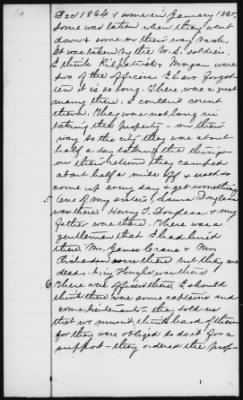 Dec 1864 & some in January 1865,
Some was taken when they went
down & some on their way back,
It was taken by the U.S. soldiers.
I think Kilpatrick & Morgan were
two of the officers I have forgot-
ten it is so long. There was a great
many there. I couldn't count
them. They was not long in
taking the property - on their
way to the city they was about
half a day taking the things
on their return they camped
about half a mile off & used to
come up every day & get something
5 One of my sisters, Laura
was there. Henry T. & my
father was there. There was a
gentleman that I had hired
there Mr. James Crane & Mr.
Richardson were there but they are
dead. was there
6 There were officers there, I should
think there was some captains and
some lieutenants - they told us
that we musn't think hard of them
for they were obliged to do it for a
support - they ordered the prop-